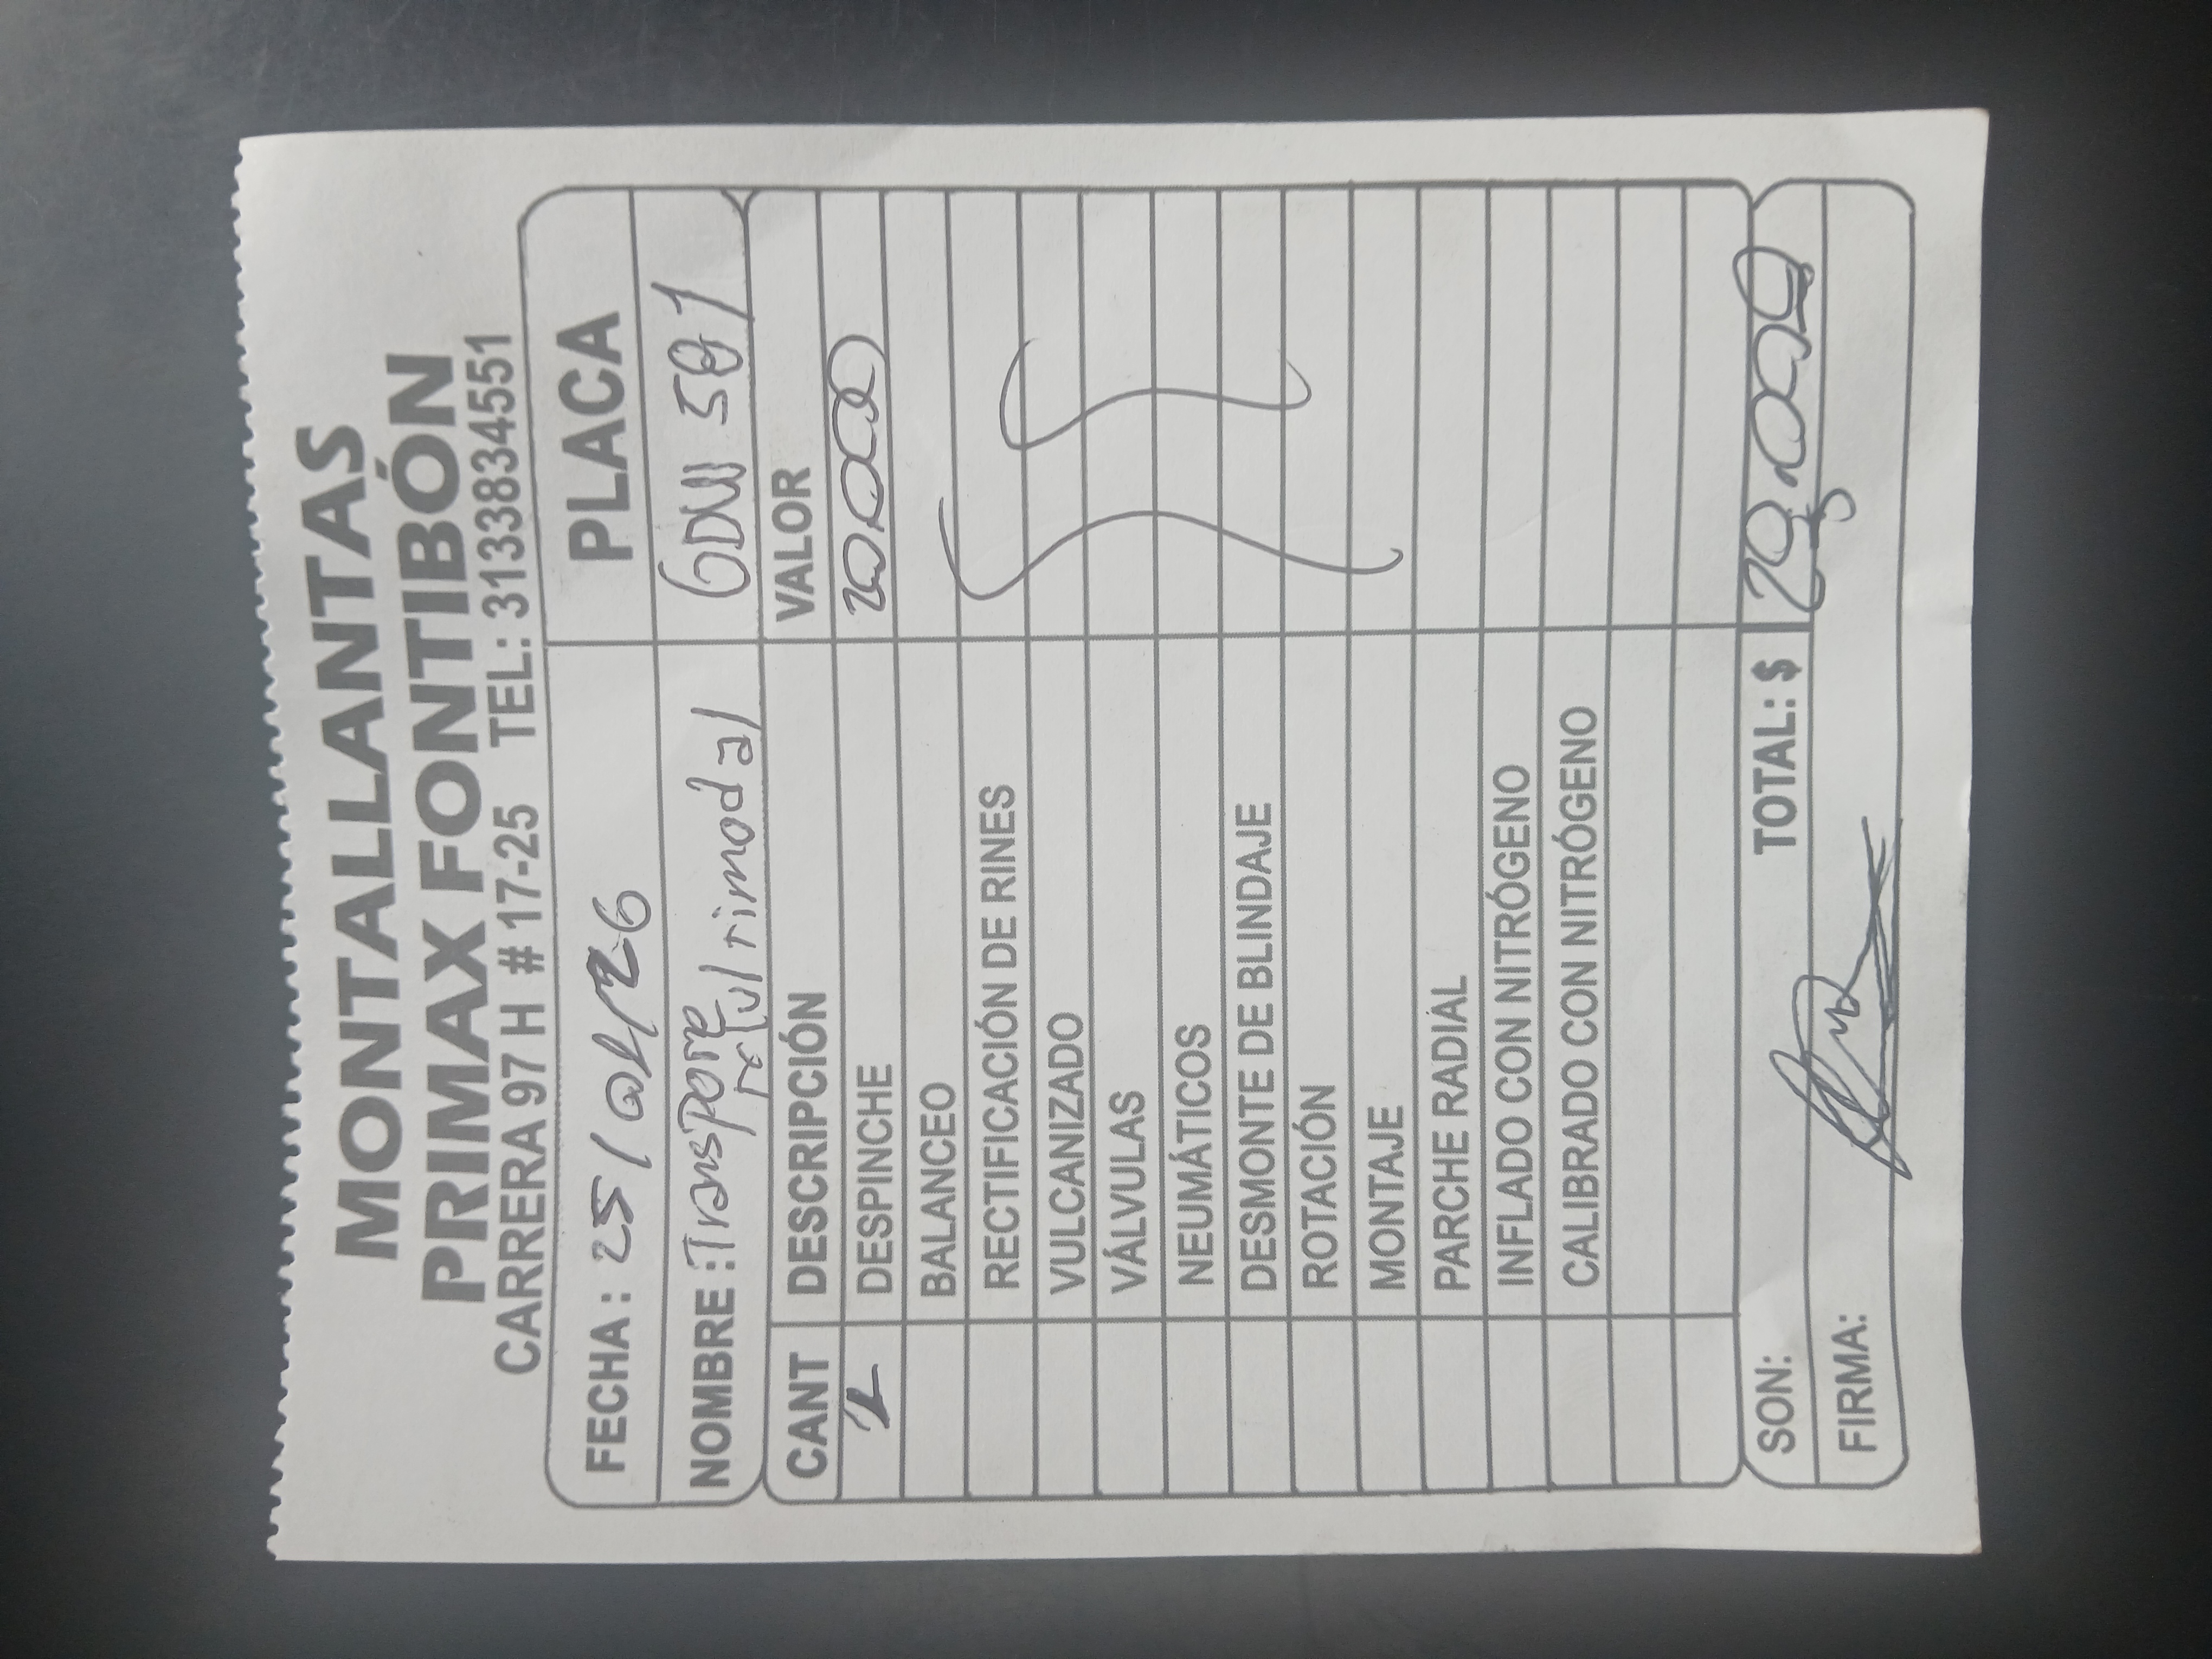 MONTALLANTAS
PRIMAX FONTIBÓN
CARRERA 97 H # 17-25 TEL: 3133834551
FECHA: 25/04/26 PLACA
NOMBRE: Transporte Multimodal
CANT DESCRIPCIÓN VALOR
1 DESPINCHE 20.000
BALANCEO
RECTIFICACIÓN DE RINES
VULCANIZADO
VÁLVULAS
NEUMÁTICOS
DESMONTE DE BLINDAJE
ROTACIÓN
MONTAJE
PARCHE RADIAL
INFLADO CON NITRÓGENO
CALIBRADO CON NITRÓGENO
SON: TOTAL: $ 20.000
FIRMA: